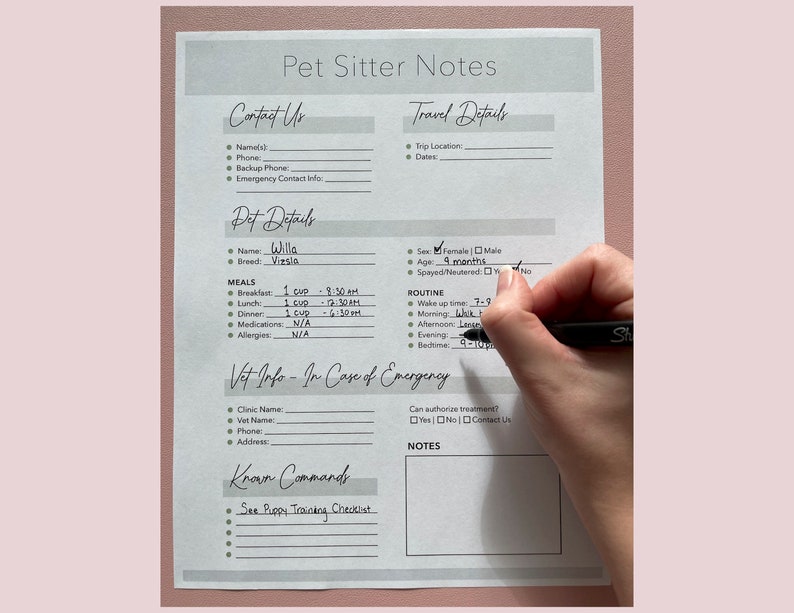 Pet Sitter Notes
Contact Us
Name(s):
Phone:
Backup Phone:
Emergency Contact Info:
Travel Details
Trip Location:
Dates:
Pet Details
Name: Willa
Breed: Vizsla
Sex: Female | Male
Age: 9 months
Spayed/Neutered: No
MEALS
Breakfast: 1 cup - 8:30 AM
Lunch: 1 cup - 12:30 AM
Dinner: 1 cup - 6:30 PM
Medications: N/A
Allergies: N/A
ROUTINE
Wake up time: 7-8
Morning: Walk
Afternoon:
Evening:
Bedtime: 9-10
Vet Info - In Case of Emergency
Clinic Name:
Vet Name:
Phone:
Address:
Can authorize treatment?
Yes | No | Contact Us
Known Commands
See Puppy Training Checklist
NOTES